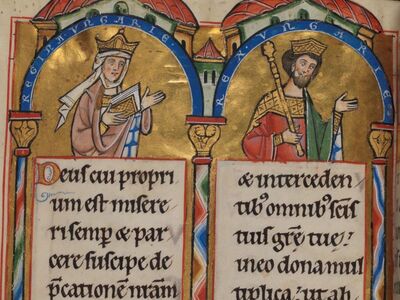 REGINA VNGARIE
REX VNGARIE
Deus cui propri
um est misere
ri semp̄ & par
cere suscipe de
p̄cationem nr̄am
& interceden
tib; omnib; sc̄is
tuis grē tue
in eo dona mul
tiplica: ut ab